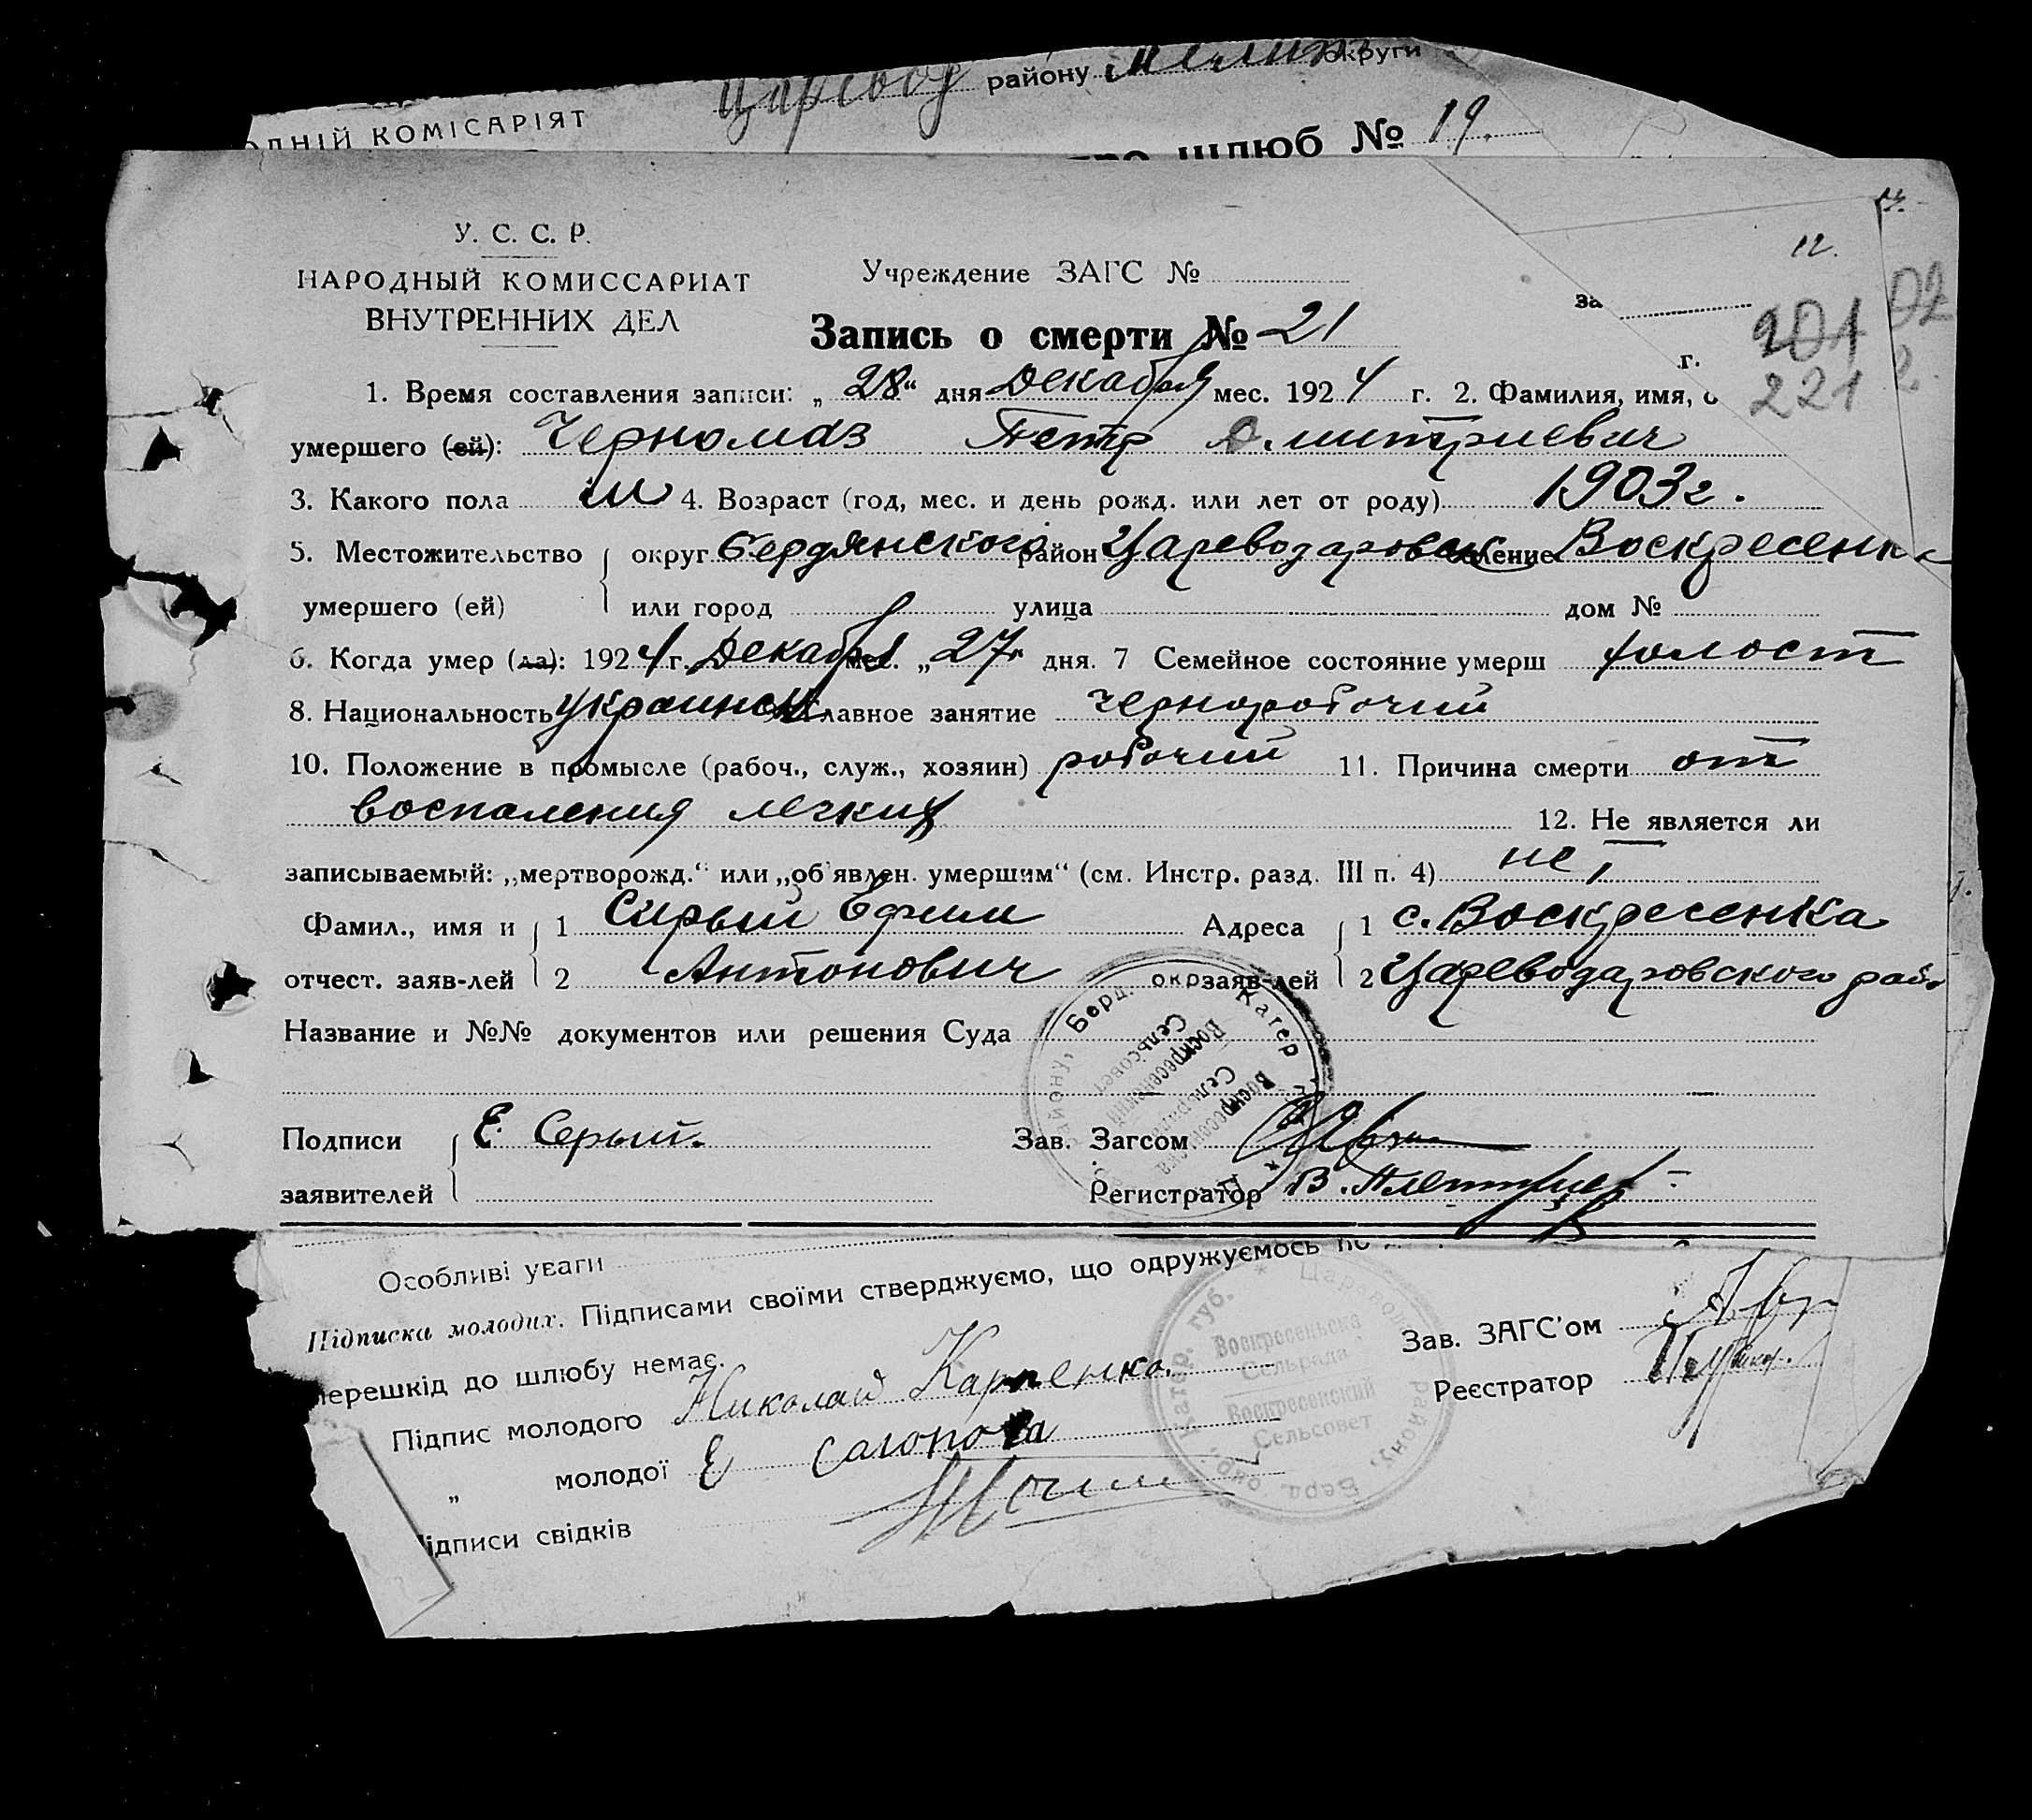 району округи
ОДНІЙ КОМІСАРІЯТ
шлюб № 19.
У. С. С. Р.
НАРОДНЫЙ КОМИССАРИАТ
ВНУТРЕННИХ ДЕЛ
Учреждение ЗАГС №
12.
за
201
221
02
Запись о смерти № 21
г.
1. Время составления записи: „28“ дня Декабря мес. 1924 г. 2. Фамилия, имя, о
умершего (ей): Черномаз Петр Дмитриевич
3. Какого пола м 4. Возраст (год, мес. и день рожд. или лет от роду) 1903 г.
5. Местожительство округ Бердянского район Цареводаровск селение Воскресенка
умершего (ей) или город улица дом №
6. Когда умер (ла): 1924 г. Декабря мес. „27“ дня. 7 Семейное состояние умерш холост
8. Национальность украинск главное занятие чернорабочий
10. Положение в промысле (рабоч., служ., хозяин) робочий 11. Причина смерти от
воспаления легких 12. Не является ли
записываемый: „мертворожд.“ или „об'явлен. умершим“ (см. Инстр. разд. III п. 4) нет
Фамил., имя и 1 Сирый Ефим Адреса 1 с. Воскресенка
отчест. заяв-лей 2 Антонович заяв-лей 2 Цареводаровского рай
Название и №№ документов или решения Суда
Берд. окр. Катер
Воскресенский
Сельсовет
Подписи Е. Серый. Зав. Загсом
заявителей Регистратор В.
Особливі уваги
Підписка молодих. Підписами своїми стверджуємо, що одружуємось по
перешкід до шлюбу немає.
Зав. ЗАГС'ом
Підпис молодого Николай Карпенко. Реєстратор
„ молодої Е Сагонова
Підписи свідків
Воскресенська
Сельрада
Воскресенский
Сельсовет
Катер. губ. Берд. окр. району